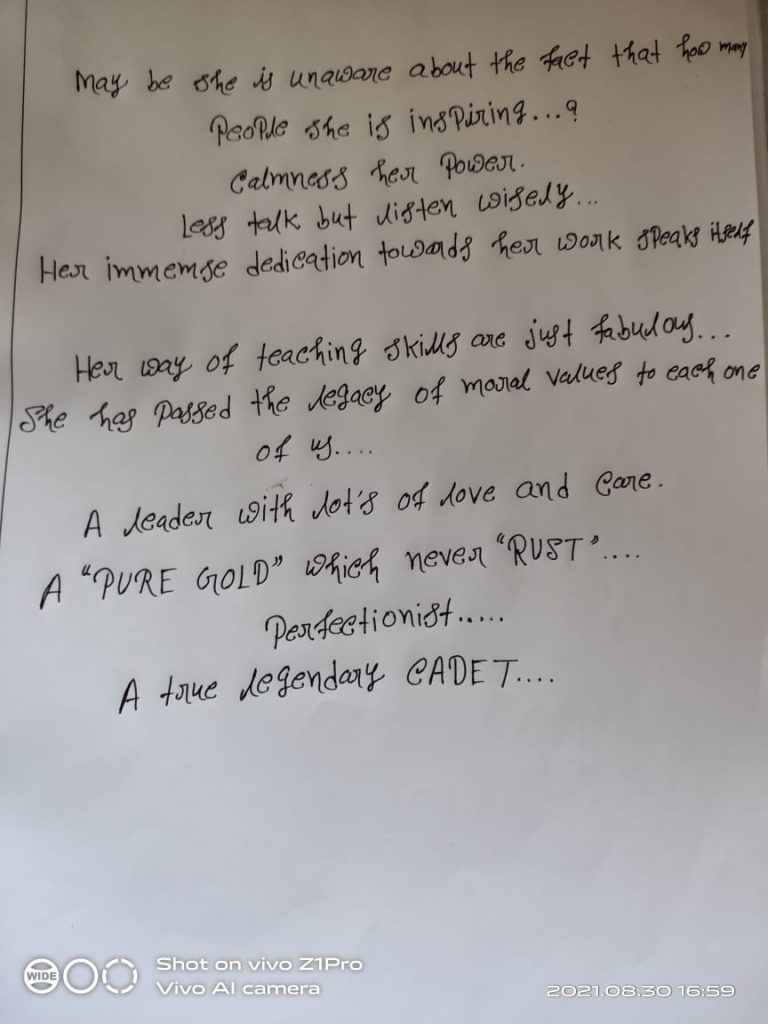 May be she is unaware about the fact that how many
People she is inspiring...?
Calmness her Power.
Less talk but listen wisely...
Her immemse dedication towards her work speaks itself
Her way of teaching skills are just fabulous...
She has passed the legacy of moral values to each one
of us....
A leader with lot's of love and Care.
A "PURE GOLD" which never "RUST"....
Perfectionist.....
A true legendary CADET....
WIDE
Shot on vivo Z1Pro
Vivo AI camera
2021.08.30 16:59